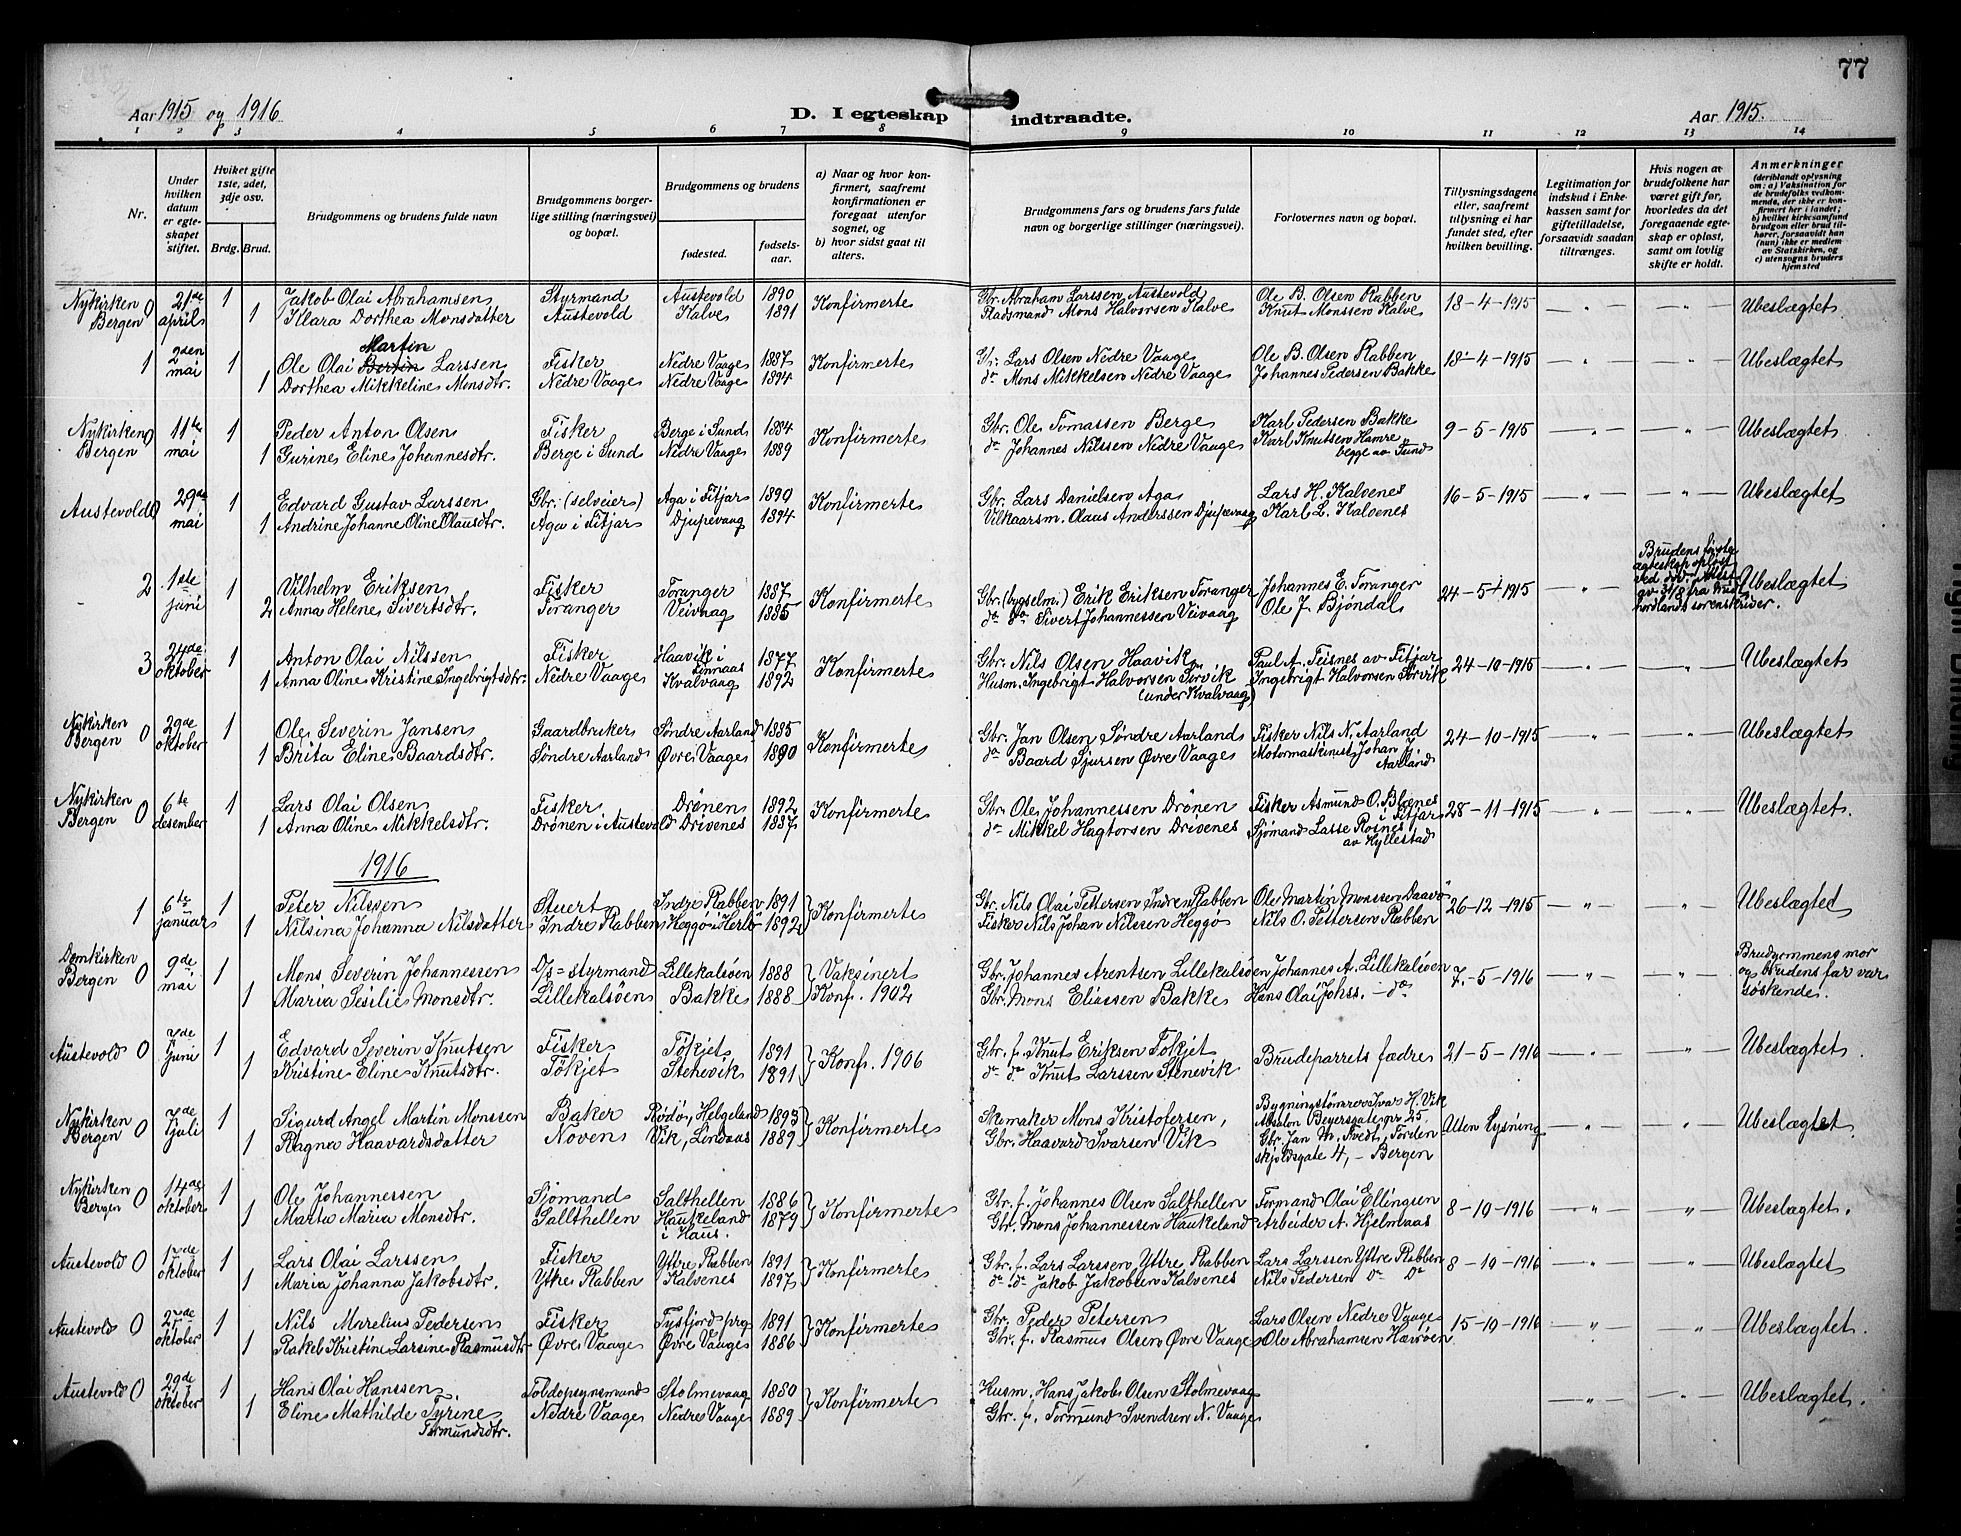 77
Aar 1915 og 1916
D. I egteskap indtraadte.
Aar 1915.
1 2 3 4 5 6 7 8 9 10 11 12 13 14
Nr.
Under hvilken datum er egteskapet stiftet.
Hviket gifte 1ste, 2det, 3dje osv.
Brdg. Brud.
Brudgommens og brudens fulde navn
Brudgommens borgerlige stilling (næringsvei) og bopæl.
Brudgommens og brudens
fødested. fødselsaar.
a) Naar og hvor konfirmert, saafremt konfirmationen er foregaat utenfor sognet, og
b) hvor sidst gaat til alters.
Brudgommens fars og brudens fars fulde navn og borgerlige stillinger (næringsvei).
Forlovernes navn og bopæl.
Tillysningsdagene eller, saafremt tillysning ei har fundet sted, efter hvilken bevilling.
Legitimation for indskud i Enkekassen samt for giftetilladelse, forsaavidt saadan tiltrænges.
Hvis nogen av brudefolkene har været gift før, hvorledes da det foregaaende egteskap er opløst, samt om lovlig skifte er holdt.
Anmerkninger
(deriblandt oplysning om: a) Vaksination for de brudefolks vedkommende, der ikke er konfirmert her i landet; b) hvilket kirkesamfund brudgom eller brud tilhører, forsaavidt han (hun) ikke er medlem av Statskirken, og c) utensogns bruders hjemsted
Nykirken 0 21de 1 Jakob Olai Abrahamsen Styrmand Austevold 1890 Konfirmerte Gbr. Abraham Larssen Austevold Ole B. Olsen Rabben 18-4-1915 — " — — " — Ubeslægtet
Bergen april 1 Klara Dorthea Monsdatter Austevold Kalve 1891 Mons Halvorsen Kalve Knut Monssen Kalve
Martin
1 2den mai 1 Ole Olai Bertin Larssen Fisker Nedre Vaage 1887 Konfirmerte Gbr. Lars Olsen Nedre Vaage Ole B. Olsen Rabben 18-4-1915 — " — — " — Ubeslægtet
1 Dorthea Mikkeline Monsdtr. Nedre Vaage Nedre Vaage 1894 do Mons Mikkelsen Nedre Vaage Johannes Pedersen Bakke
Nykirken 0 11te 1 Peder Anton Olsen Fisker Berge i Sund 1884 Konfirmerte Gbr. Ole Tomassen Berge Karl Pedersen Bakke 9-5-1915 — " — — " — Ubeslægtet
Bergen mai 1 Gurine Eline Johannesdtr. Berge i Sund Nedre Vaage 1889 do Johannes Nilssen Nedre Vaage Karl Knutsen Hamre
begge av Sund
Austevold 0 29de 1 Edvard Gustav Larssen Gbr. (selveier) Aga i Fitjar 1890 Konfirmerte Gbr. Lars Danielsen Aga Lars H. Kalvenes 16-5-1915 — " — — " — Ubeslægtet
mai 1 Andrine Johanne Oline Olausdtr. Aga i Fitjar Djupevaag 1894 Vilkaarsm. Olaus Anderssen Djupevaag Karl L. Kalvenes
2 1ste 1 Vilhelm Eriksen Fisker Toranger 1887 Konfirmerte Gbr. (bygselm.) Erik Eriksen Toranger Johannes E. Toranger 24-5-1915 — " — Brudens første egteskap opløst ved av 31/8 fra sorenskriver. Ubeslægtet
juni 2 Anna Helene Sivertsdtr. Toranger Veivaag 1885 do do Sivert Johannessen Veivaag Ole J. Bjöndal
3 24de 1 Anton Olai Nilssen Fisker Haavik i Finnaas 1877 Konfirmerte Gbr. Nils Olsen Haavik Paul A. Teisnes av Fitjar 24-10-1915 — " — — " — Ubeslægtet
oktober 1 Anna Oline Kristine Ingebrigtsdtr. Nedre Vaage Kvalvaag 1892 Husm. Ingebrigt Halvorsen Sørvik Ingebrigt Halvorsen Sørvik
(under Kvalvaag)
Nykirken 0 29de 1 Ole Severin Jansen Gaardbruker Søndre Aarland 1885 Konfirmerte Gbr. Jan Olsen Søndre Aarland Fisker Nils N. Aarland 24-10-1915 — " — — " — Ubeslægtet
Bergen oktober 1 Brita Eline Baardsdtr. Søndre Aarland Øvre Vaage 1890 do Baard Sjursen Øvre Vaage Motormaskinist Johan Aarland
Nykirken 0 6te 1 Lars Olai Olsen Fisker Drönen 1892 Konfirmerte Gbr. Ole Johannessen Drönen Fisker Asmund O. Blænes i Fitjar 28-11-1915 — " — — " — Ubeslægtet.
Bergen desember 1 Anna Oline Mikkelsdtr. Drönen i Austevold Drivenes 1887 do Mikkel Hagtorsen Drivenes Sjömand Lasse Rosnes av Hyllestad
1916
1 6te 1 Peter Nilssen Stuert Indre Rabben 1891 Konfirmerte Gbr. Nils Olai Pettersen Indre Rabben Ole Martin Monssen Daavø 26-12-1915 — " — — " — Ubeslægted
januar 1 Nilsina Johanna Nilsdatter Indre Rabben Heggø i Herlö 1892 Fisker Nils Johan Nilssen Heggø Nils O. Pettersen Rabben
Domkirken 0 9de 1 Mons Severin Johannessen D/s=styrmand Lillekalsöen 1888 Vaksinert Gbr. Johannes Arentsen Lillekalsöen Johannes A. Lillekalsöen 7-5-1916 — " — — " — Brudgommens mor og brudens far var söskende.
Bergen mai 1 Maria Sesilie Monsdtr. Lillekalsöen Bakke 1888 Konf. 1902 Gbr. Mons Eliassen Bakke Hans Olai Johss. — do
Austevold 0 juni 1 Edvard Severin Knutsen Fisker Tökjet 1891 Konf. 1906 Gbr. f. Knut Eriksen Tökjet Brudeparrets fædre 21-5-1916 — " — — " — Ubeslægtet
1 Kristine Eline Knutsdtr. Tökjet Stenevik 1891 do do Knut Larssen Stenevik
Nykirken 0 juli 1 Sigurd Angel Martin Monssen Baker Rödö, Helgeland 1893 Konfirmerte Skomaker Mons Kristofersen, Bygningstömrer Ivar H. Vik Absalon Beyersgate nr. 25 Uten lysning — " — — " — Ubeslægtet
Bergen 1 Ragna Haavardsdatter Noven Vik, Lindaas 1889 Gbr. Haavard Ivarsen Vik Gbr. Jan M. Tvedt, Tordenskjoldsgate 4, - Bergen
Nykirken 0 14de 1 Ole Johannessen Sjömand Salthellen 1886 Konfirmerte Gbr. f. Johannes Olsen Salthellen Formand Olai Ellingsen 8-10-1916 — " — — " — Ubeslægtet.
Bergen oktober 1 Marta Maria Monsdtr. Sallthellen Haukeland i Haus. 1879 Gbr. Mons Johannessen Haukeland Arbeider A. Hjelmaas
Austevold 0 oktober 1 Lars Olai Larssen Fisker Yttre Rabben 1891 Konfirmerte Gbr. f. Lars Larssen Yttre Rabben Lars Larssen Yttre Rabben 8-10-1916 — " — — " — Ubeslægtet
1 Maria Johanna Jakobsdtr. Ytre Rabben Kalvenes 1897 do do Jakob Jakobsen Kalvenes Nils Pedersen do do
Austevold 0 oktober 1 Nils Marelius Pedersen Fisker Tysfjord prg. 1891 Konfirmerte Gbr. Peder Petersen Lars Olsen Nedre Vaage 15-10-1916 " " Ubeslægtet.
1 Rakel Kristine Larsine Rasmusdtr. Øvre Vaage Øvre Vaage 1886 Gbr. f. Rasmus Olsen Øvre Vaage Ole Abrahamsen Hevröen
Austevold 0 29de 1 Hans Olai Hanssen Toldopsynsmand Stolmevaag 1880 Konfirmerte Husm. Hans Jakob Olsen Stolmevaag — " — — " — Ubeslægtet.
oktober 1 Eline Mathilde Tyrine Tormundsdtr. Nedre Vaage Nedre Vaage 1889 Gbr. f. Tormund Svendsen N. Vaage